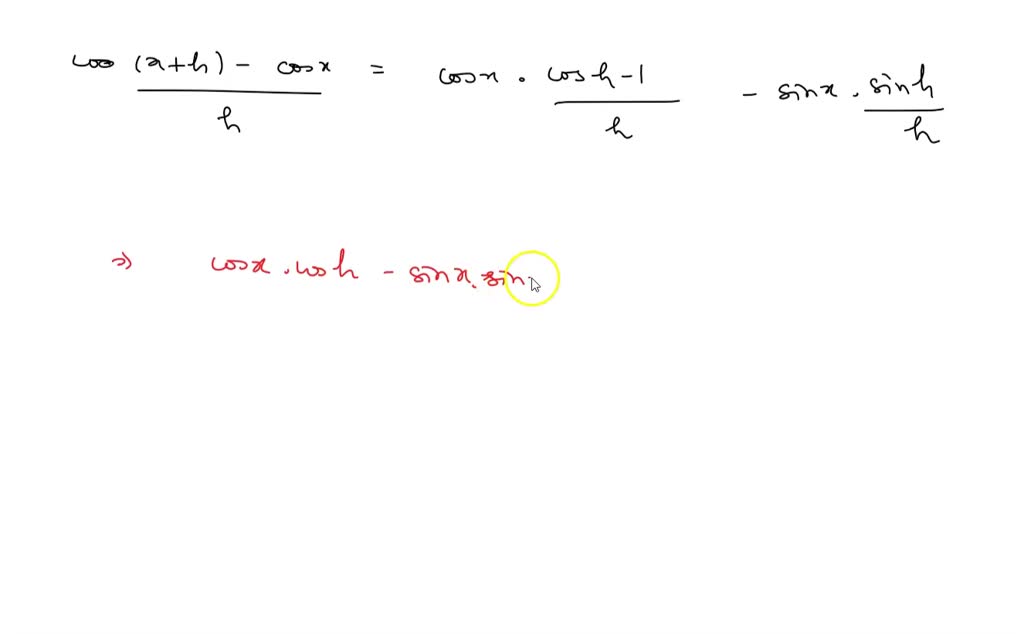 cos (x+h) - cosx / h = cosx . cosh-1 / h - sinx . sinh / h
⇒ cosx . cosh - sinx . sin